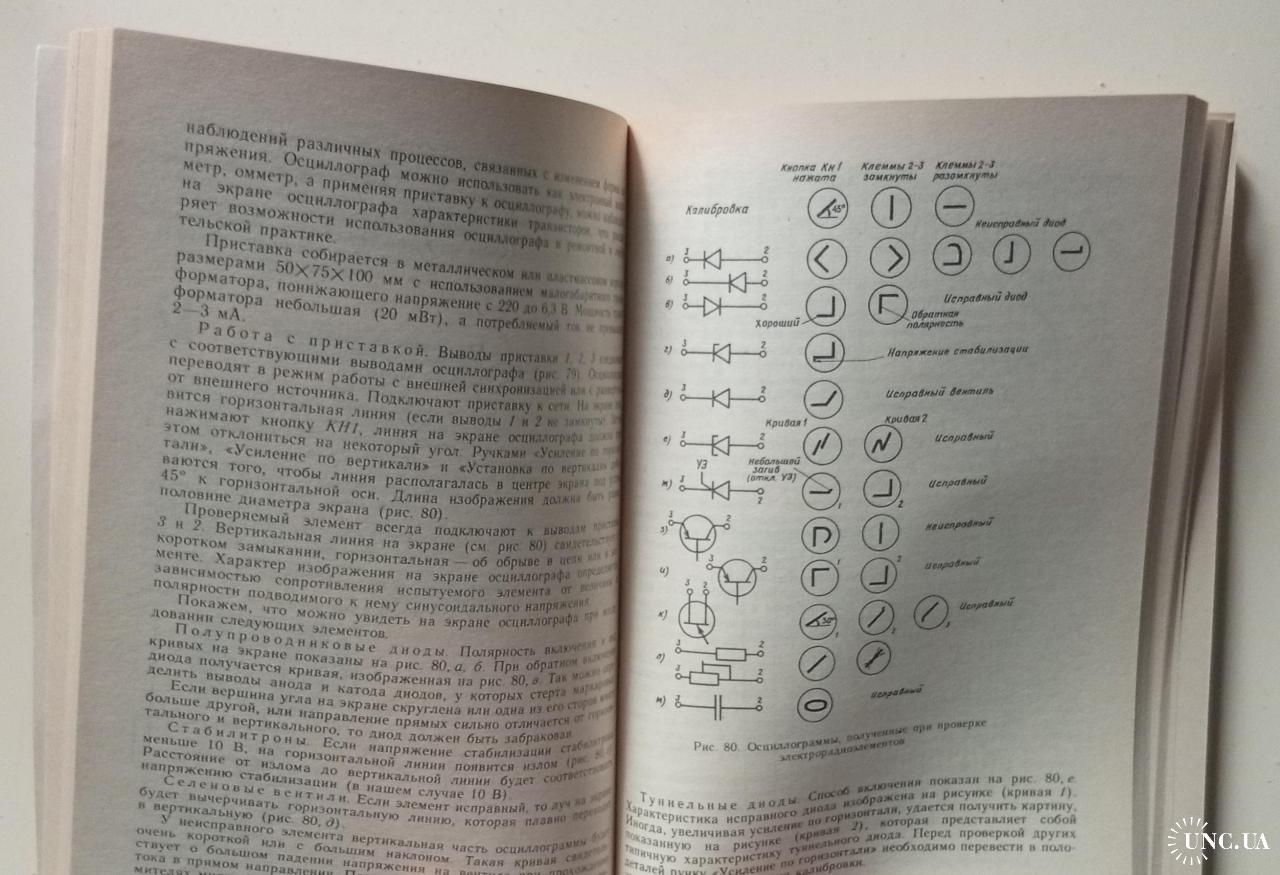 наблюдений различных процессов, связанных с изменением формы
пряжения. Осциллограф можно использовать как электронный
метр, омметр, а применяя приставку к осциллографу, можно
на экране осциллографа характеристики транзисторов, что
ряет возможности использования осциллографа в ремонтной и
тельской практике.
Приставка собирается в металлическом или пластмассовом
размерами 50×75×100 мм с использованием малогабаритного
форматора, понижающего напряжение с 220 до 6,3 В. Мощность
форматора небольшая (20 мВт), а потребляемый ток не
2—3 мА.
Работа с приставкой. Выводы приставки 1, 2, 3
с соответствующими выводами осциллографа (рис. 79).
переводят в режим работы с внешней синхронизацией или с
от внешнего источника. Подключают приставку к сети. На экране
вится горизонтальная линия (если выводы 1 и 2 не замкнуты).
нажимают кнопку КН1, линия на экране осциллографа должна
этом отклониться на некоторый угол. Ручками «Усиление по
тали», «Усиление по вертикали» и «Установка по вертикали»
ваются того, чтобы линия располагалась в центре экрана под
45° к горизонтальной оси. Длина изображения должна быть
половине диаметра экрана (рис. 80).
Проверяемый элемент всегда подключают к выводам
3 и 2. Вертикальная линия на экране (см. рис. 80)
коротком замыкании, горизонтальная — об обрыве в цепи или в
менте. Характер изображения на экране осциллографа
зависимостью сопротивления испытуемого элемента от величины
полярности подводимого к нему синусоидального напряжения.
Покажем, что можно увидеть на экране осциллографа при
довании следующих элементов.
Полупроводниковые диоды. Полярность включения и
кривых на экране показаны на рис. 80, а, б. При обратном включении
диода получается кривая, изображенная на рис. 80, в. Так можно
делить выводы анода и катода диодов, у которых стерта маркировка
Если вершина угла на экране скруглена или одна из его сторон
больше другой, или направление прямых сильно отличается от
тального и вертикального, то диод должен быть забракован.
Стабилитроны. Если напряжение стабилизации
меньше 10 В, на горизонтальной линии появится излом (рис. 80,
Расстояние от излома до вертикальной линии будет соответствовать
напряжению стабилизации (в нашем случае 10 В).
Селеновые вентили. Если элемент исправный, то луч на экране
будет вычерчивать горизонтальную линию, которая плавно
в вертикальную (рис. 80, д).
У неисправного элемента вертикальная часть осциллограммы будет
очень короткой или с большим наклоном. Такая кривая
ствует о большом падении напряжения на вентиле при
тока в прямом направлении.
Кнопка Кн1 нажата
Клеммы 2-3 замкнуты
Клеммы 2-3 разомкнуты
Калибровка
45°
Неисправный диод
а) 3 2
б) 3 2
в) 3 2
Исправный диод
Хороший
Обратная полярность
г) 3 2
Напряжение стабилизации
д) 3 2
Исправный вентиль
Кривая 1
Кривая 2
е) 3 2
Исправный
УЭ
Небольшой загиб (откл. УЭ)
ж) 3 2
1 2
Исправный
з) 3 2
Неисправный
и) 3 2
1 2
Исправный
к) 3 2
30° 1 2 3
Исправный
л) 3 2
3 2
м) 3 2
Исправный
Рис. 80. Осциллограммы, полученные при проверке
электрорадиоэлементов
Туннельные диоды. Способ включения показан на рис. 80, е.
Характеристика исправного диода изображена на рисунке (кривая 1).
Иногда, увеличивая усиление по горизонтали, удается получить картину,
показанную на рисунке (кривая 2), которая представляет собой
типичную характеристику туннельного диода. Перед проверкой других
деталей ручку «Усиление по горизонтали» необходимо перевести в поло-
калибровки.
UNC.UA